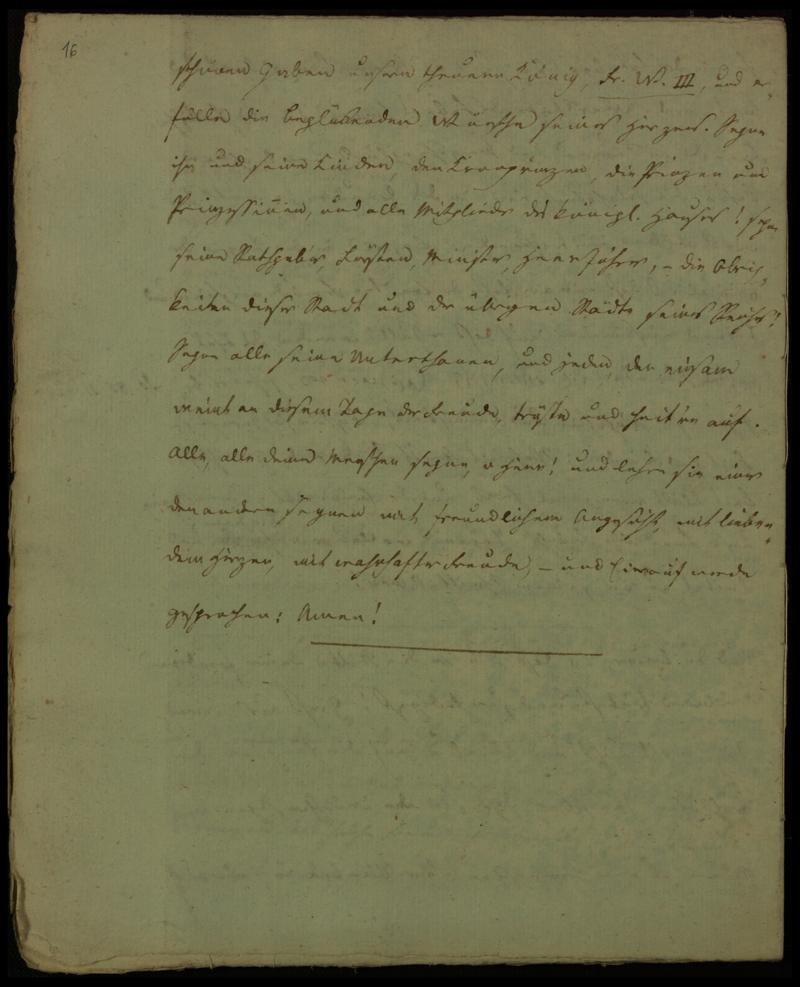 16
schönen Gaben unsern theuren König, Fr. W. III, und er-
fülle die beglückenden Wünsche seines Herzens. Segne
ihn und seine Kinder, den Kronprinzen, die Prinzen und
Prinzessinnen, und alle Mitglieder des Königl. Hauses! Segne
seine Rathgeber, Fürsten, Minister, Heerführer, – die Obrig-
keiten dieser Stadt und der übrigen Städte seines Reichs!
Segne alle seine Unterthanen, und jeden, der einsam
weint an diesem Tage der Freude, tröste und heit're auf.
Alle, alle deine Menschen segne, o Herr! und lehre sie einer
den andern segnen mit freundlichem Angesicht, mit lieben-
dem Herzen, mit wahrhafter Freude, – und hierauf werde
gesprochen: Amen!